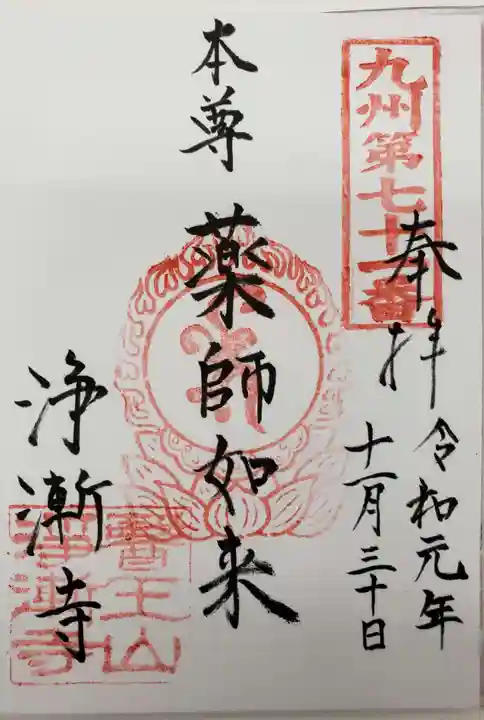 九州第七十一番
奉拝
令和元年
十一月三十日
本尊
薬師如来
浄漸寺
醫王山
浄漸寺